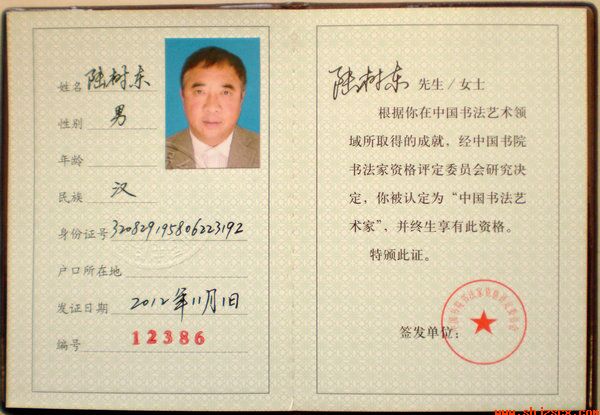 姓名 陆树东
性别 男
年龄
民族 汉
身份证号 320829195806223192
户口所在地
发证日期 2012年11月1日
编号 12386
陆树东 先生/女士
根据你在中国书法艺术领
域所取得的成就，经中国书院
书法家资格评定委员会研究决
定，你被认定为“中国书法艺
术家”，并终生享有此资格。
特颁此证。
签发单位：